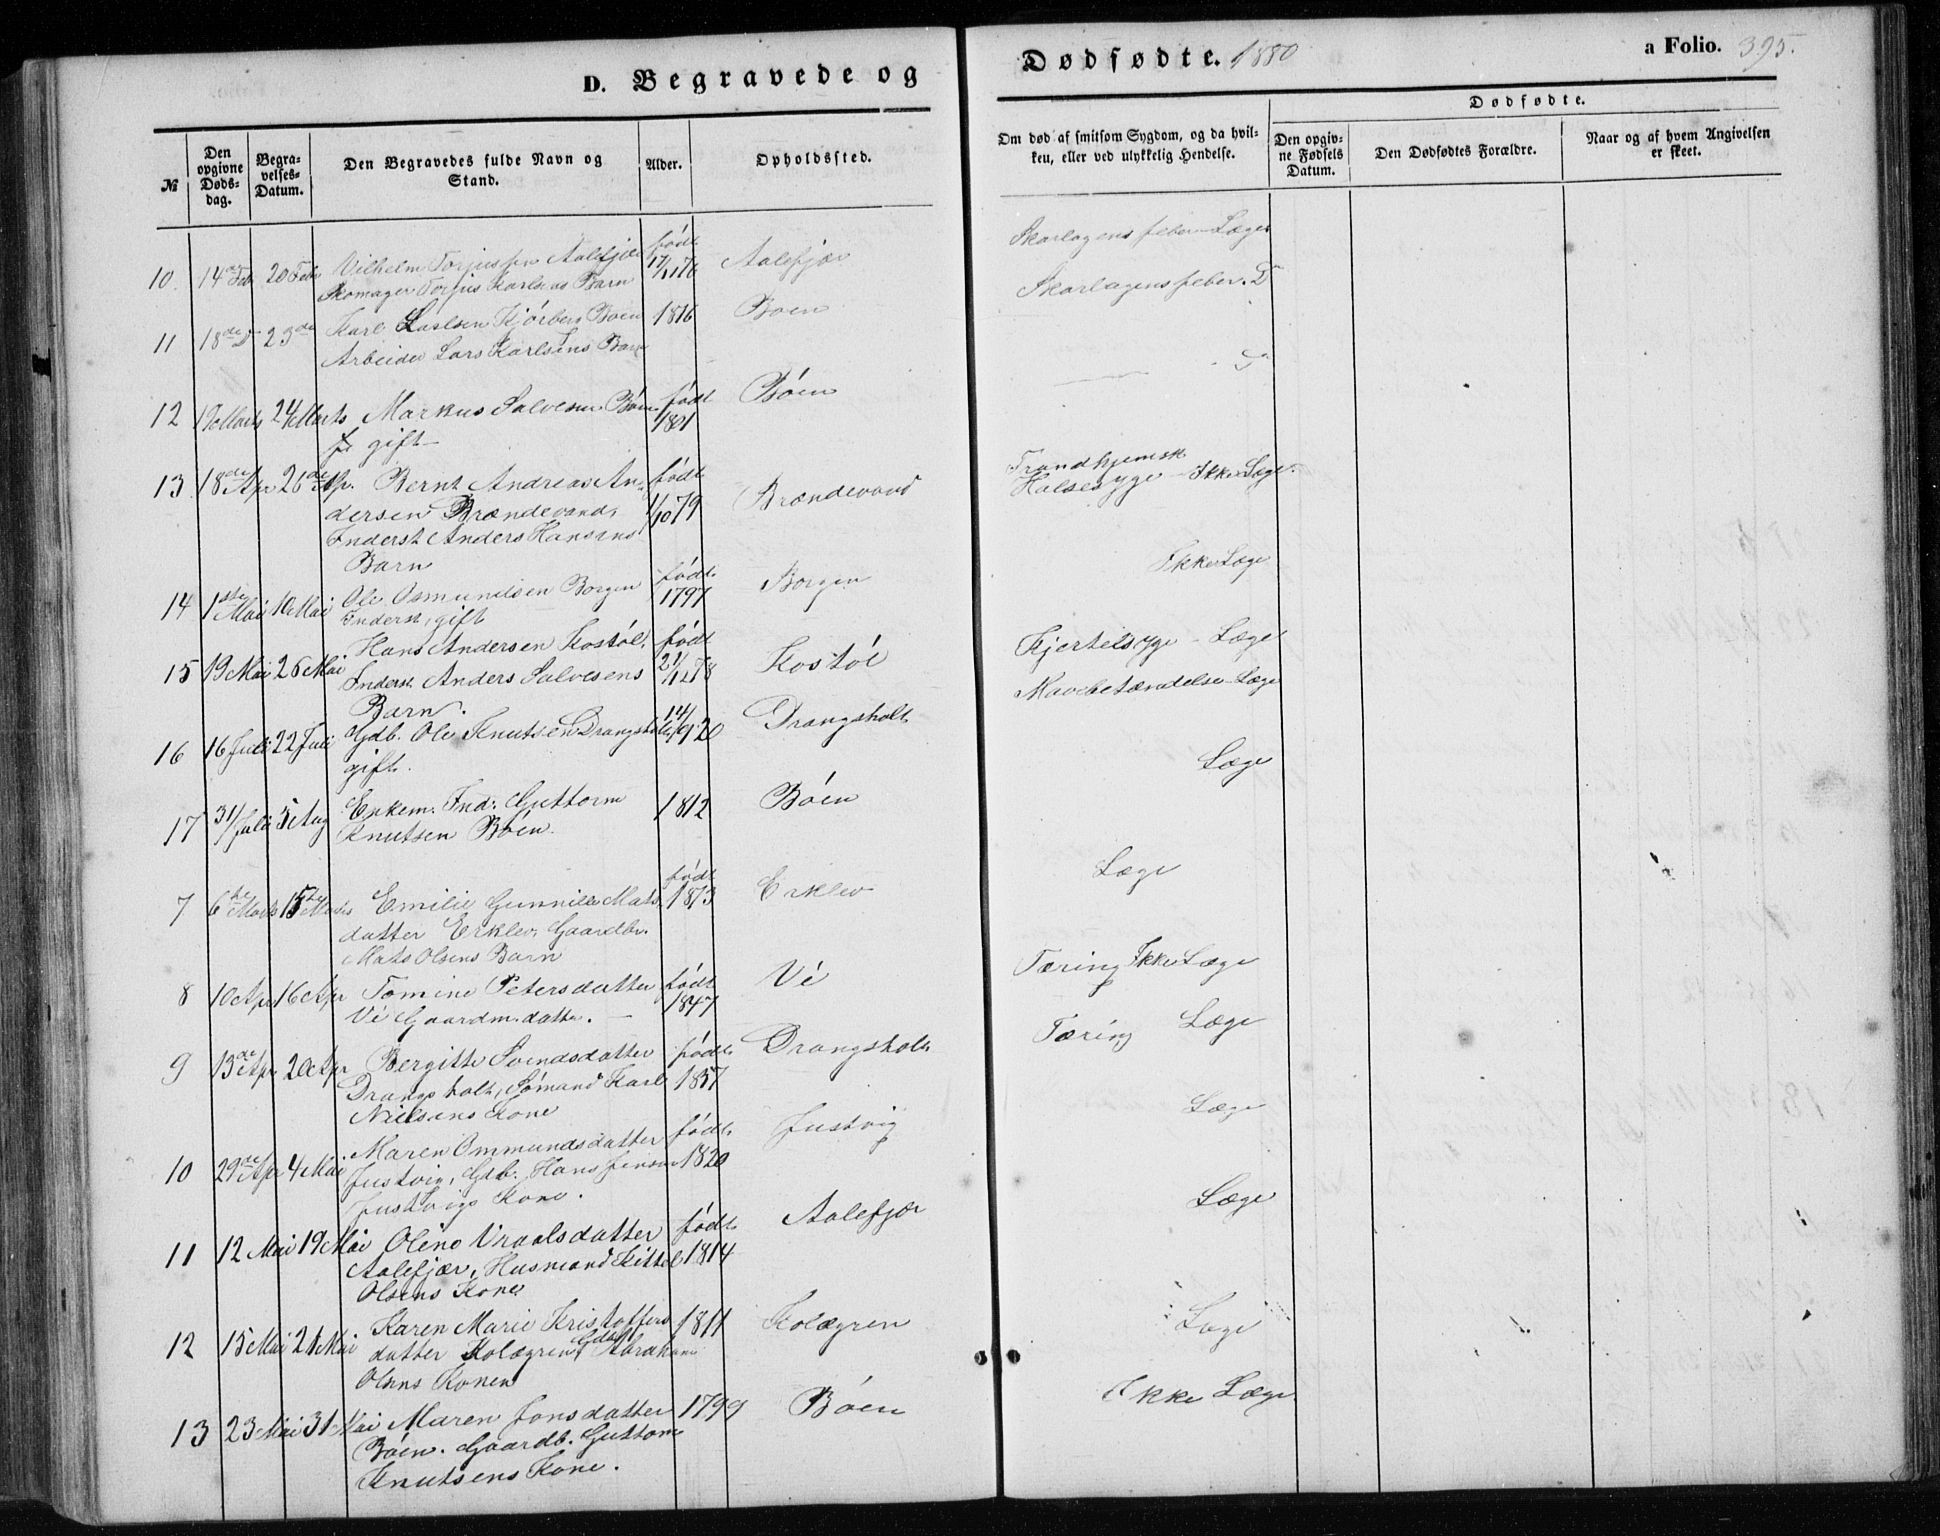 D. Begravede og Dødfødte. 1880
a Folio. 395.
№
Den opgivne Døds-dag.
Begra-velses-Datum.
Den Begravedes fulde Navn og Stand.
Alder.
Opholdssted.
Om død af smitsom Sygdom, og da hvil-
ken, eller ved ulykkelig Hendelse.
Dødfødte.
Den opgiv-ne Fødsels Datum.
Den Dødfødtes Forældre.
Naar og af hvem Angivelsen er skeet.
10. 14de Feb 20 Febr Vilhelm Torjussen Aalefjær født 17/1 76 Aalefjær Skarlagensfeber Læge
Skomager Torjus Karlsens Barn
11 18de D 23de Karl Larsen Kjørberg Boen 1876 Boen Skarlagensfeber. D
Arbeider Lars Karlsens Barn
12 19 Marts 24 Marts Markus Salvesen Bóen født 1801 Bóen
gift
13 18de Apr 26de Ap. Bernt Andreas An- født 1/10 79 Brændevand Trondhjemsk
Halsesyge - Ikke Læge.
dersen Brændevand,
Inderst Anders Hansens
Barn
14 1ste Mai 10 Mai Ole Osmundsen Borgen født 1797 Borgen Ikke Læge
Inderst, gift
15 19 Mai 26 Mai Hans Andersen Kostól, født 21/12 78 Kostól Kjertelsyge - Læge
Inderst Anders Salvesens
Barn.
16 16 Juli 22 Juli Gdb. Ole Knutsen Drangsholt 14/9 20 Drangsholt Mavebetændelse Læge
gift.
17 31/Juli 5 Aug Enkem. Ind: Guttorm 1812 Bóen Læge
Knutsen Bóen.
7 6te Marts 15de Marts Emilie Gunnille Mats født 1873 Erklev Læge
datter Erklev, Gaardbr.
Mats Olsens Barn
8 10 Apr 16 Apr Tomine Petersdatter født 1847 Vé Tæring Ikke Læge
Vé Gaardm.datter.
9 13de Apr 20 Apr Bergitte Svendsdatter født 1857 Drangsholt Tæring Læge
Drangsholt, Sómand Karl
Nielsens Kone
10 29de Apr 4 Mai Maren Ommundsdatter født 1820 Justvig Læge
Justvig, Gdb. Hans Jensen
Justvigs Kone.
11 12 Mai 19 Mai Oline Vraalsdatter født 1814 Aalefjær Læge
Aalefjær, Husmand Kittel
Olsens Kone
12 15 Mai 21 Mai Karen Marie Kristoffers 1811 Kolægren Læge
datter Kolægren, Gdb. Abraham
Olsens Konen
13 23 Mai 31 Mai Maren Jonsdatter 1799 Bóen Ikke Læge
Bóen. Gaardb. Guttorm
Knutsens Kone.